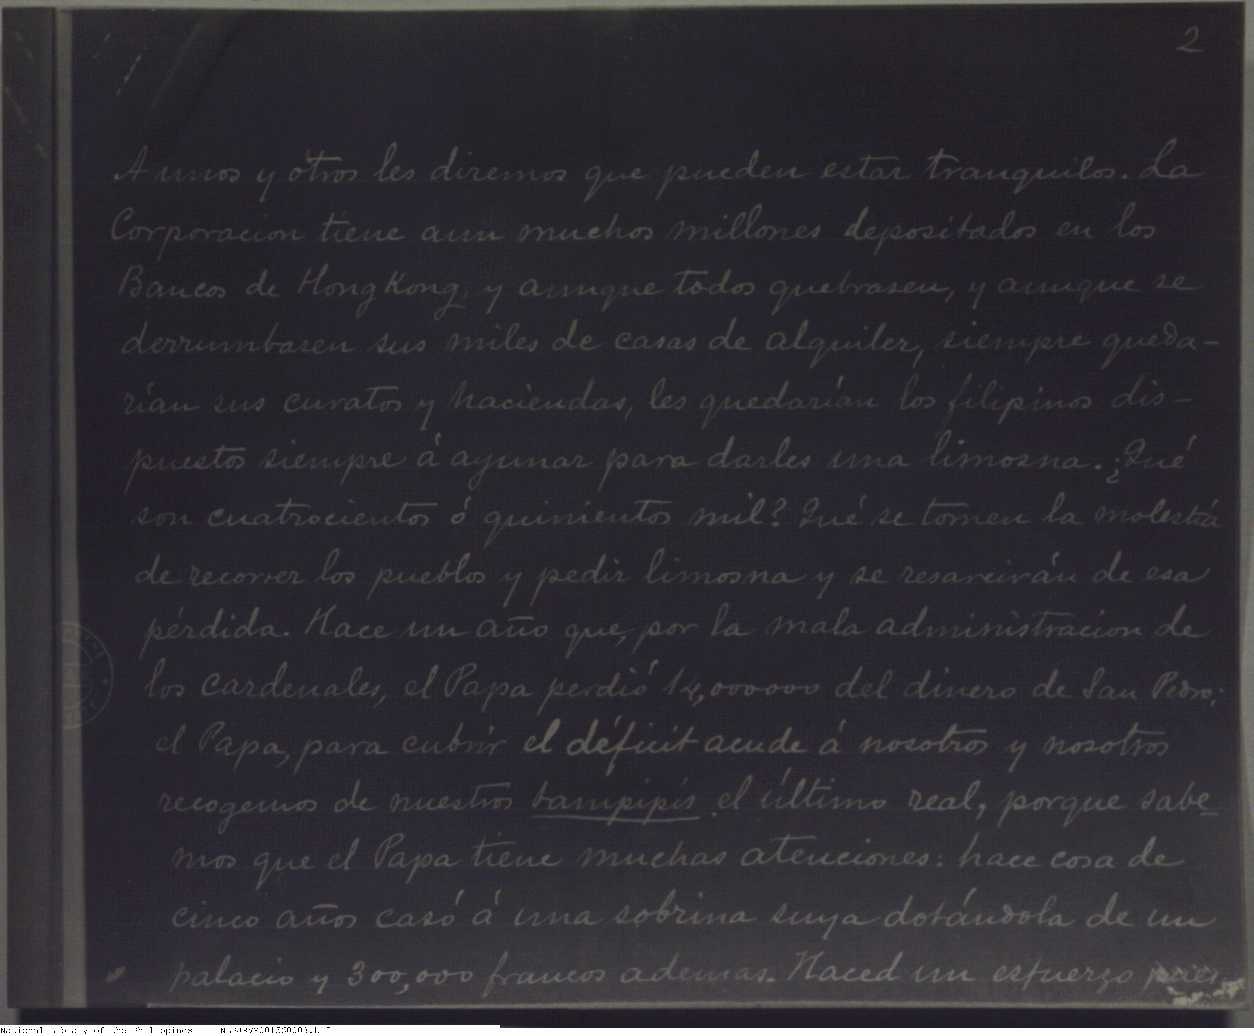 2
A unos y otros les diremos que pueden estar tranquilos. La
Corporacion tiene aun muchos millones depositados en los
Bancos de HongKong, y aunque todos quebrasen, y aunque se
derrumbasen sus miles de casas de alquiler, siempre queda-
rían sus curatos y haciendas, les quedarían los filipinos dis-
puestos siempre á ayunar para darles una limosna. ¿Qué
son cuatrocientos ó quinientos mil? Qué se tomen la molestia
de recorrer los pueblos y pedir limosna y se resarcirán de esa
pérdida. Hace un año que, por la mala administracion de
los cardenales, el Papa perdió 14,000000 del dinero de San Pedro;
el Papa, para cubrir el déficit acude á nosotros y nosotros
recogemos de nuestros tampipis el último real, porque sabe-
mos que el Papa tiene muchas atenciones: hace cosa de
cinco años casó á una sobrina suya dotándola de un
palacio y 300,000 francos ademas. Haced un esfuerzo pues
National Library of the Philippines